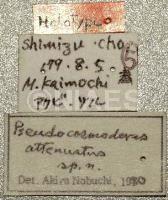 Holotype
Shimizu-cho
'79. 8. 5.
M. Kaimochi
Pseudocosmoderes
attenuatus
sp. n.
Det. Akira Nobuchi, 1980